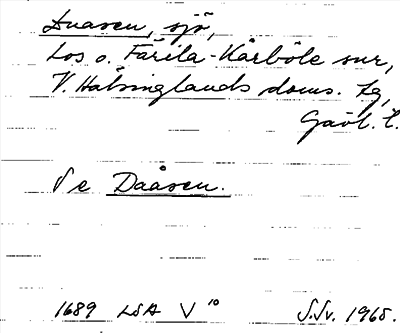 Duåsen, sjö,
Los o. Färila-Kårböle snr,
V. Hälsinglands doms. Lg,
Gävl. L.
Se Daåsen.
1689 LSA V 10 S.Sv. 1965.